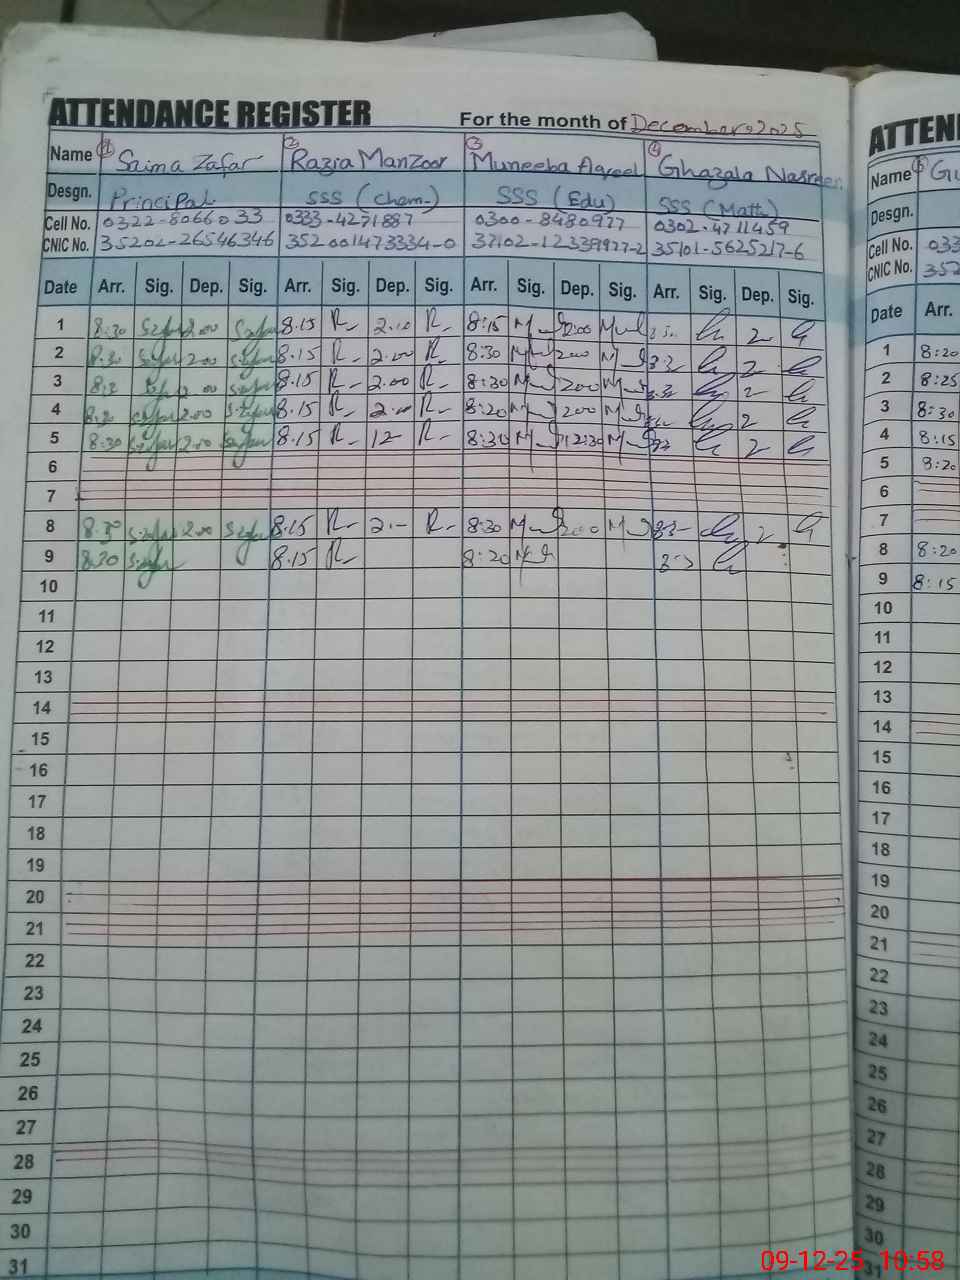 ATTENDANCE REGISTER For the month of December 2025
Name 1 Saima Zafar 2 Razia Manzoor 3 Muneeba Aqeel 4 Ghazala Nasreen
Desgn. Principal SSS (Chem) SSS (Edu) SSS (Math)
Cell No. 0322-8066033 0333-4271887 0300-8480977 0302-4711459
CNIC No. 35202-26546346 352001473334-0 37102-12339977-2 35101-5625217-6
Date Arr. Sig. Dep. Sig. Arr. Sig. Dep. Sig. Arr. Sig. Dep. Sig. Arr. Sig. Dep. Sig.
1 8:30 2.00 8.15 R 2.10 R 8:15 2:00 2
2 2.00 8.15 R 2.00 R 8:30 200 2
3 2.00 8.15 R 2.00 R 8:30 200 2
4 2.00 8.15 R R 8:20 200 2
5 8:30 2.00 8.15 R 12 R 8:30 12:30 2
6
7
8 8.30 2.00 8.15 R 2 R 8:30 2:00 2
9 8.30 8.15 R 8:20
10
11
12
13
14
15
16
17
18
19
20
21
22
23
24
25
26
27
28
29
30
31
ATTEN
Name 5 Gu
Desgn.
Cell No. 033
CNIC No. 352
Date Arr.
1 8:20
2 8:25
3 8:30
4 8:15
5 8:20
6
7
8 8:20
9 8:15
10
11
12
13
14
15
16
17
18
19
20
21
22
23
24
25
26
27
28
29
30
31
09-12-25 10:58